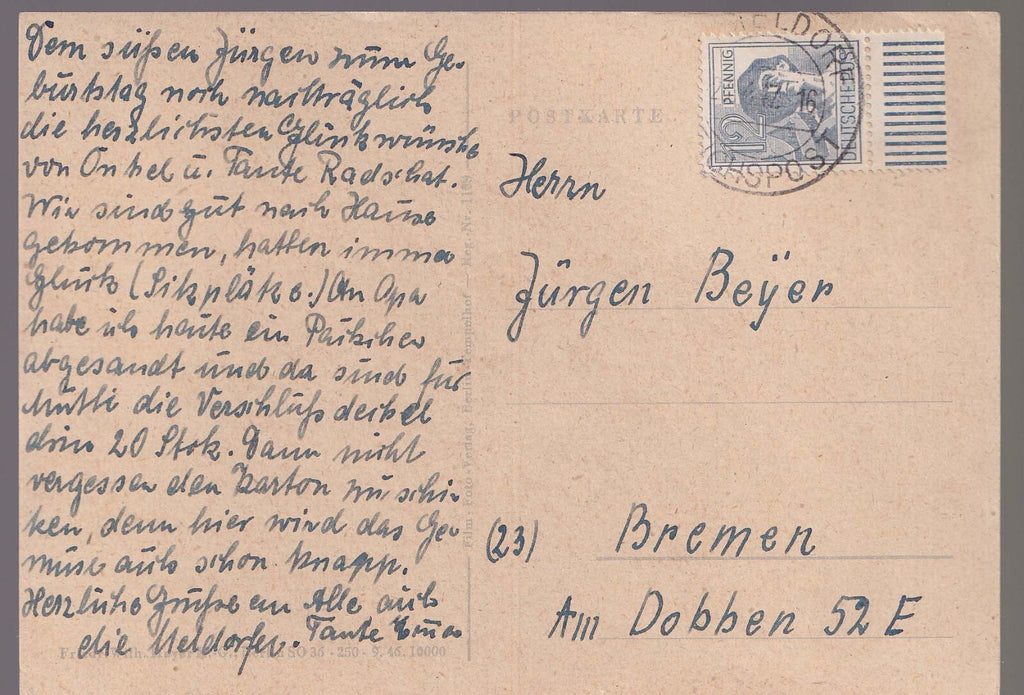 Dem süßen Jürgen zum Ge-
burtstag noch nachträglich
die herzlichsten Glückwünsche
von Onkel u. Tante Radschat.
Wir sind gut nach Hause
gekommen, hatten immer
Glück (Sitzplätze.) An Opa
habe ich heute ein Päckchen
abgesandt und da sind für
Mutti die Verschlußdeckel
drin 20 Stck. Dann nicht
vergessen den Karton zu schik-
ken, denn hier wird das Ge-
müse auch schon knapp.
Herzliche Grüße an Alle auch
die Meldorfer. Tante
POSTKARTE
PFENNIG
12
DEUTSCHE POST
16
Herrn
Jürgen Beyer
(23) Bremen
Am Dobben 52 E
Film-Foto-Verlag, Berlin-Tempelhof — Reg.-Nr.
Berlin SO 36 - 250 - 9. 46. 10000